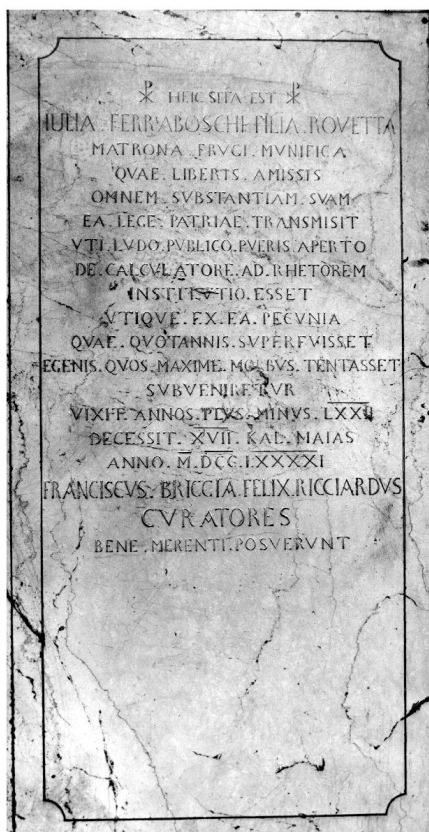 ☧ HEIC SITA EST ☧
IULIA FERRABOSCHI FILIA ROVETTA
MATRONA FRUGI MUNIFICA
QVAE LIBERIS AMISSIS
OMNEM SUBSTANTIAM SVAM
EA LEGE PATRIAE TRANSMISIT
VTI LVDO PVBLICO PVERIS APERTO
DE CALCVLATORE AD RHETOREM
INSTITVTIO ESSET
VTIQVE EX EA PECVNIA
QVAE QVOTANNIS SVPERFVISSET
EGENIS QVOS MAXIME MORBVS TENTASSET
SVBVENIRETVR
VIXIT ANNOS PLVS MINVS LXXII
DECESSIT XVII KAL MAIAS
ANNO M DCC LXXXXI
FRANCISCVS BRICCIA FELIX RICCIARDVS
CVRATORES
BENE MERENTI POSVERVNT